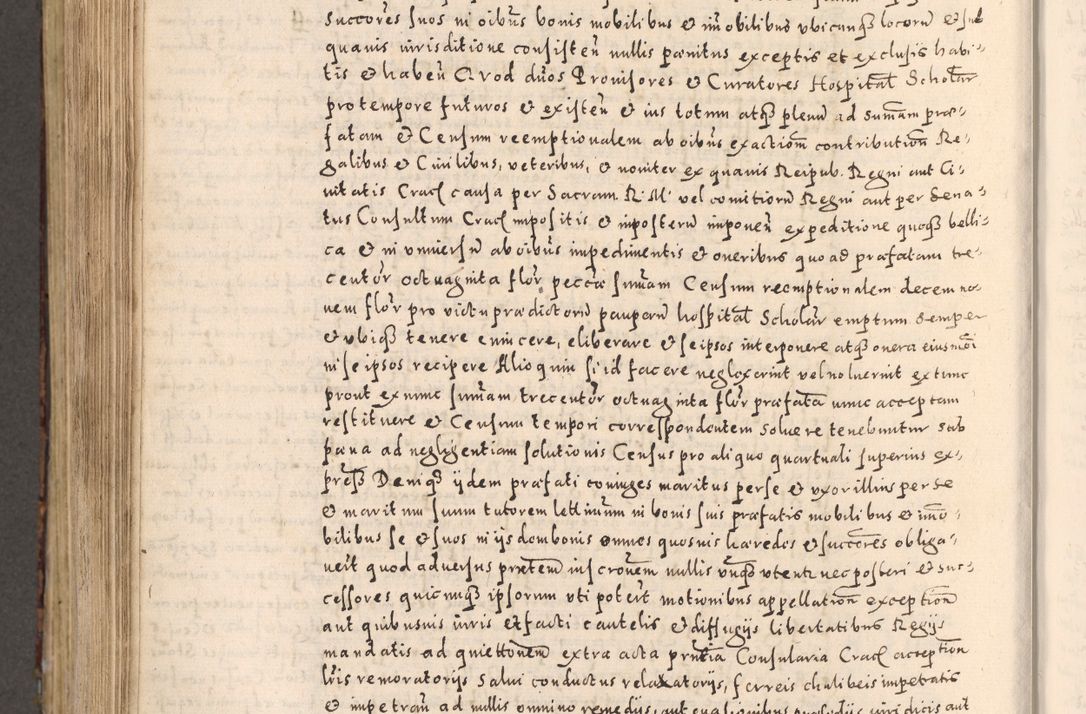 succores suos in oibus bonis mobilibus et imobilibus vbicunqz locoru et sub
quauis iurisditione consisten nullis pænitus exceptis et exclusis habi-
tis et haben Qvod duos Prouisores et Curatores Hospital Scholar
pro tempore futuros et existen et ius totum atqz plenu ad sumam præ-
fatam et Censum reemptionalem ab oibus exactiom contribution Re-
galibus et Ciuilibus, veteribus, et nouiter ex quauis Reipub. Regni aut Ci-
uitatis Crac causa per Sacram R. M. vel comitioru Regni aut per Sena-
tus Consultum Crac impositis et inposteru imponen expeditione quoqz belli-
ca et in vniuersu ab oibus impedimentis et oneribus quo ad præfatam tre-
centor octuaginta flor pecca sumam Censum reemptionalem decem no-
uem flor pro victu prædictoru pauperu hospital Scholar emptum semper
et vbiqz tenere euincere, eliberare et se ipsos interponere atqz onera eiusmoi
in se ipsos recipere Alioquin si id facere neglexerint vel noluerint ex tunc
prout ex nunc sumam trecentor octuaginta flor præfata nunc acceptam
restituere et Censum tempori correspondentem soluere tenebuntur sub
pæna ad negligentiam solutionis Census pro aliquo quartuali superius ex-
press Deniqz ijdem præfati coniuges maritus per se et vxor illius per se
et maritum suum tutorem lettimum in bonis suis præfatis mobilibus et imo-
bilibus se et suos in ijsdom bonis omnes quosuis hæredes et succores obliga-
ueit quod aduersus prntem inscrouem nullis vnqz vtentr nec posteri et suc-
cessores quicunqz ipsorum vti poteit motionibus appellation exception
aut quibusuis iuris et facti cautelis et diffugijs libertatibus Regijs
mandatis ad quiettonem extra acta prntia Consularia Crac acception
lris remoratorijs salui conductus relaxatorijs, ferreis chalibeis impetratis
et impetran ad nullis omnino remedijs, aut euasionibus iuridicis aut